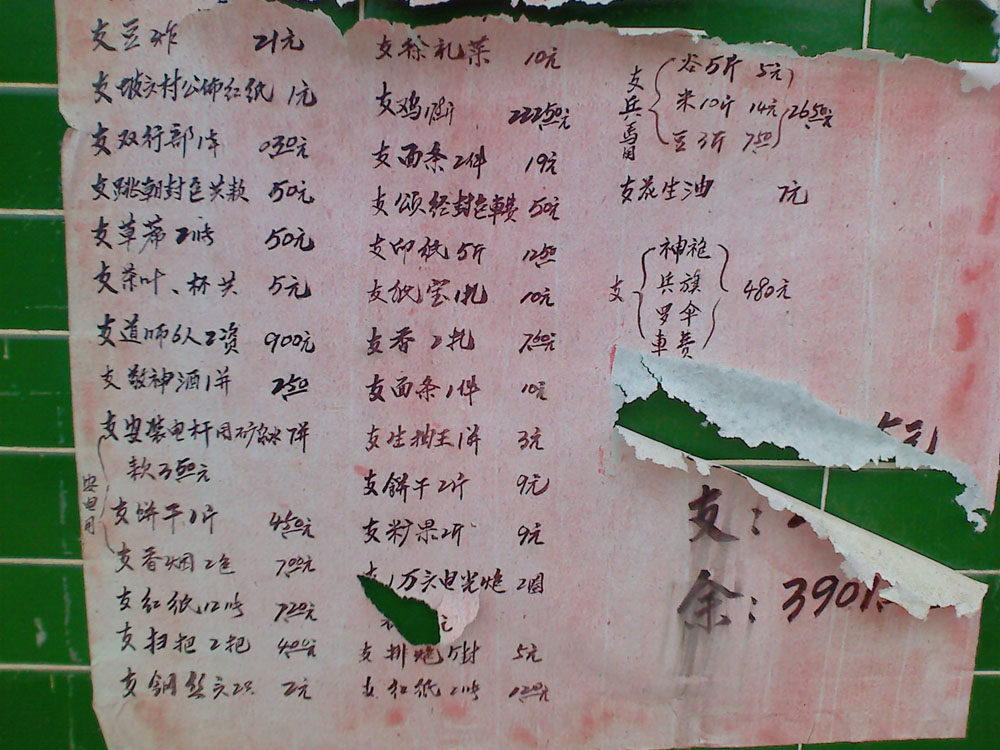 支豆炸 21元
支坡六村公佈红纸 1元
支双行部1本 0.30元
支跳朝封包共款 50元
支草蓆2 50元
支茶叶、杯共 5元
支道师6人工资 900元
支敬神酒1并 2.50
支安装电杆用矿泉水7并
款3.50元
安电用
支饼干1斤 4.50元
支香烟2包 7.00元
支红纸12 7.20元
支扫把2把 4.00元
支钢丝 2元
支徐礼菜 10元
支鸡 222.50元
支面条2件 19元
支颂经封包車费 50元
支印纸5斤 12.50
支纸宝1扎 10元
支香2扎 7.60元
支面条1件 10元
支生抽王1并 3元
支餅干2斤 9元
支粉果2斤 9元
1万六电光炮2圆
元
支排炮5封 5元
支红纸2 1.20元
支兵馬用
谷5斤 5元
米10斤 14元
豆3斤 7.50
26.50元
支花生油 7元
支
神袍
兵旗
罗伞
車费
480元
元
支:
余:3901